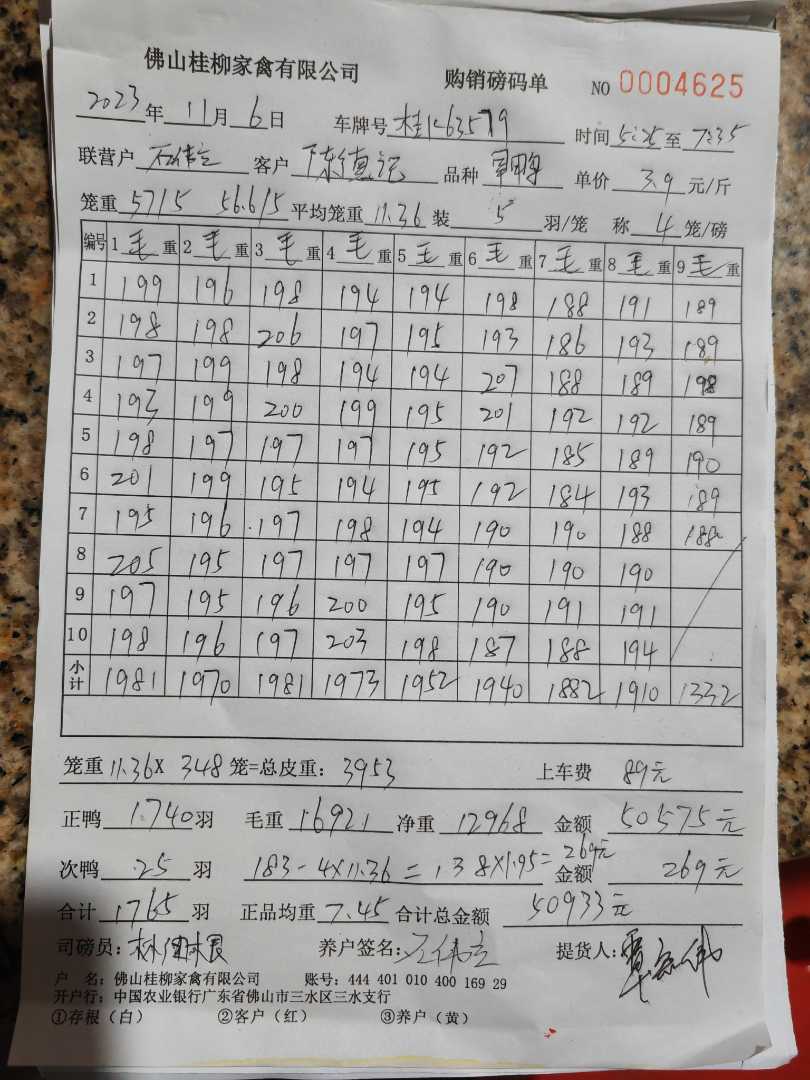 佛山桂柳家禽有限公司 购销磅码单 NO 0004625
2023年 11月 6日 车牌号 桂K63579 时间 5:25至 7:35
联营户 石伟立 客户 陈德记 品种 单价 3.9 元/斤
笼重 57/5 56.6/5 平均笼重 11.36 装 5 羽/笼 称 4 笼/磅
编号 1 毛 重 2 毛 重 3 毛 重 4 毛 重 5 毛 重 6 毛 重 7 毛 重 8 毛 重 9 毛 重
1 199 196 198 194 194 198 188 191 189
2 198 198 206 197 195 193 186 193 189
3 197 199 198 194 194 207 188 189 198
4 193 199 200 199 195 201 192 192 189
5 198 197 197 197 195 192 185 189 190
6 201 199 195 194 195 192 184 193 189
7 195 196 197 198 194 190 190 188 188
8 205 195 197 197 197 190 190 190
9 197 195 196 200 195 190 191 191
10 198 196 197 203 198 187 188 194
小计 1981 1970 1981 1973 1952 1940 1882 1910 1332
笼重 11.36X 348 笼=总皮重: 3953 上车费 89元
正鸭 1740 羽 毛重 16921 净重 12968 金额 50575元
次鸭 25 羽 183-4X11.36=138X1.95=269元 金额 269元
合计 1765 羽 正品均重 7.45 合计总金额 50933元
司磅员: 养户签名: 石伟立 提货人:
户 名: 佛山桂柳家禽有限公司 账号: 444 401 010 400 169 29
开户行: 中国农业银行广东省佛山市三水区三水支行
①存根(白) ②客户(红) ③养户(黄)